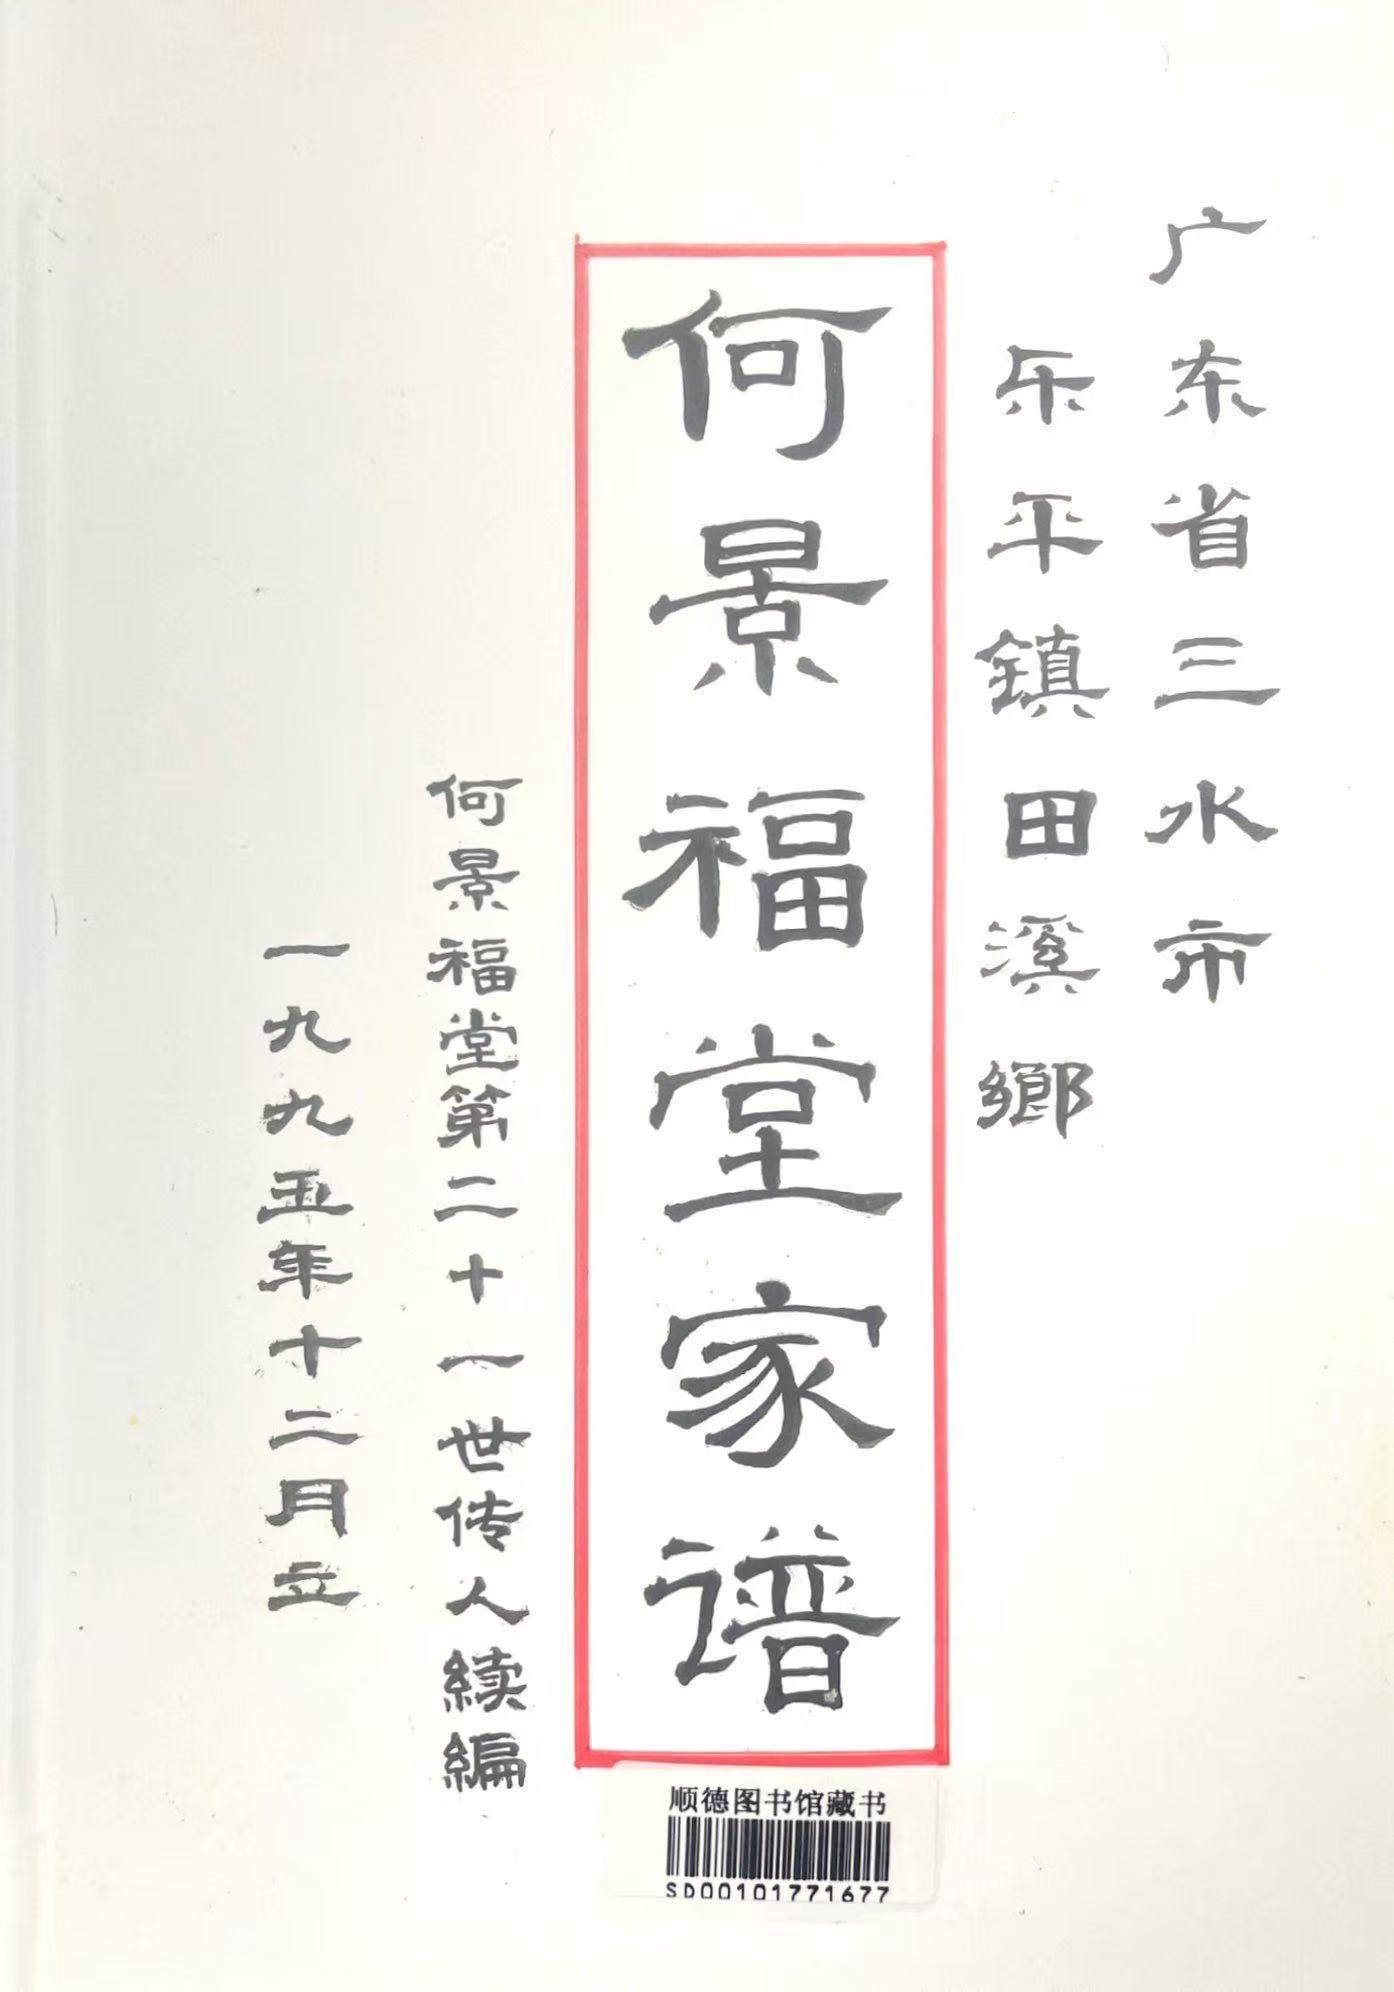 广东省三水市
乐平鎮田溪鄉
何景福堂家谱
何景福堂第二十一世传人续编
一九九五年十二月立
顺德图书馆藏书
SD00101771677